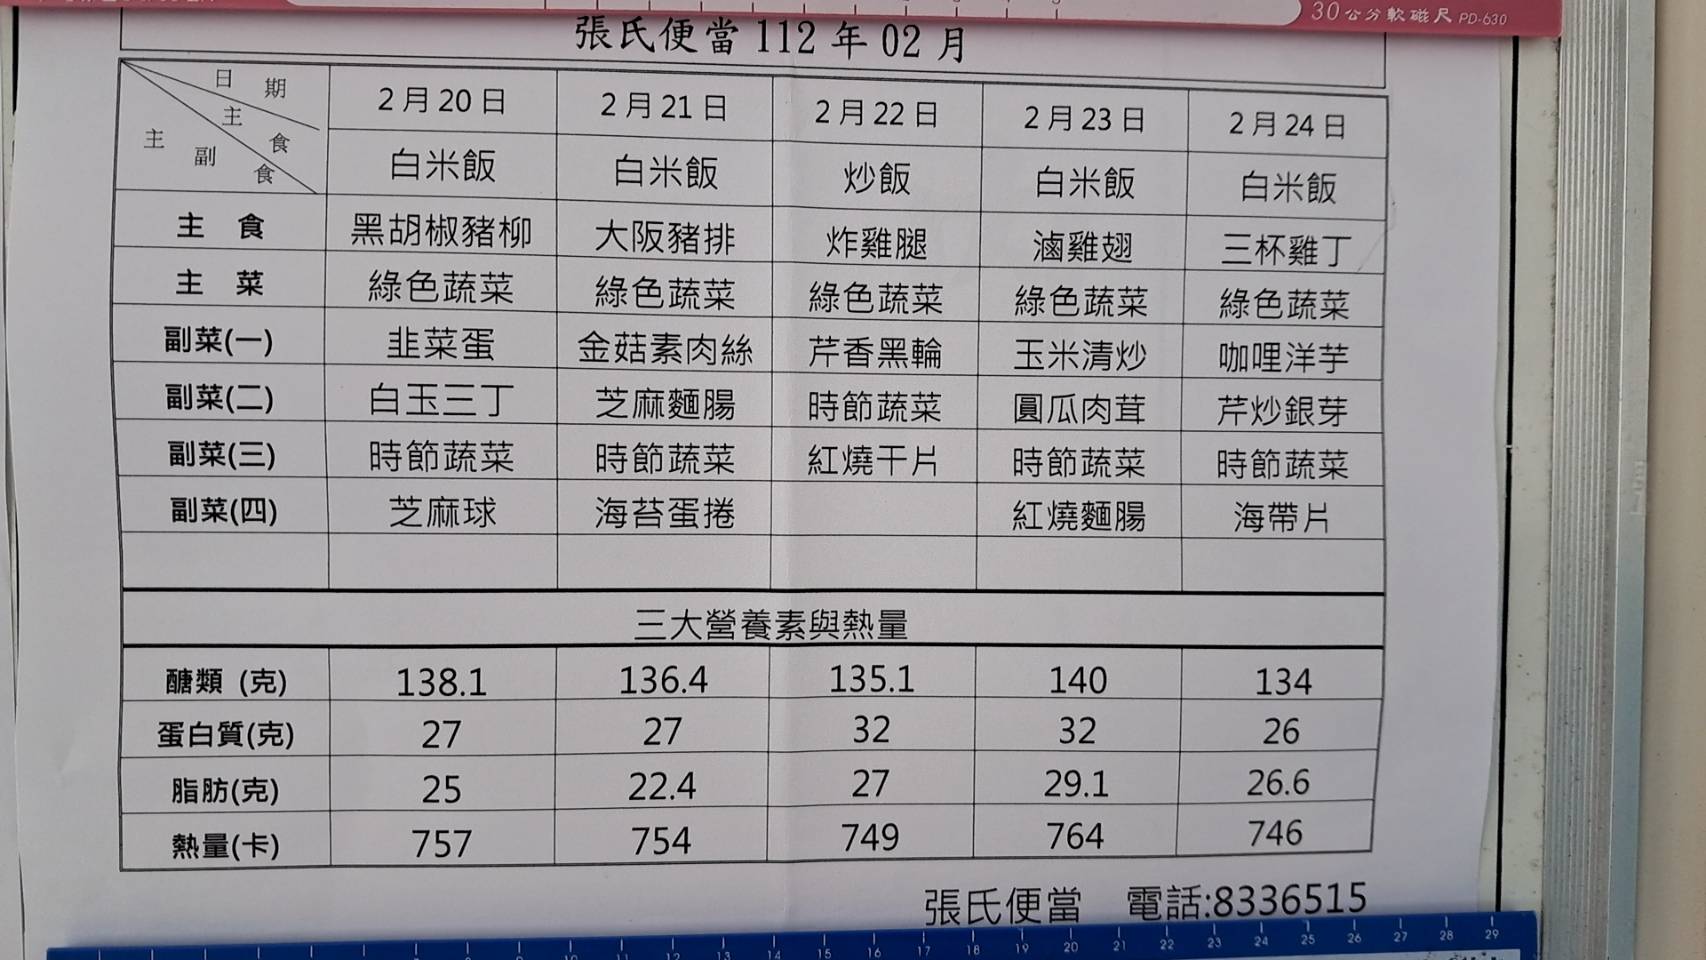 30公分軟磁尺 PD-630
張氏便當 112 年 02 月
日 期 2月20日 2月21日 2月22日 2月23日 2月24日
主 食 白米飯 白米飯 炒飯 白米飯 白米飯
主 副 食
主 食 黑胡椒豬柳 大阪豬排 炸雞腿 滷雞翅 三杯雞丁
主 菜 綠色蔬菜 綠色蔬菜 綠色蔬菜 綠色蔬菜 綠色蔬菜
副菜(一) 韭菜蛋 金菇素肉絲 芹香黑輪 玉米清炒 咖哩洋芋
副菜(二) 白玉三丁 芝麻麵腸 時節蔬菜 圓瓜肉茸 芹炒銀芽
副菜(三) 時節蔬菜 時節蔬菜 紅燒干片 時節蔬菜 時節蔬菜
副菜(四) 芝麻球 海苔蛋捲 紅燒麵腸 海帶片
三大營養素與熱量
醣類 (克) 138.1 136.4 135.1 140 134
蛋白質(克) 27 27 32 32 26
脂肪(克) 25 22.4 27 29.1 26.6
熱量(卡) 757 754 749 764 746
張氏便當 電話:8336515
15 16 17 18 19 20 21 22 23 24 25 26 27 28 29